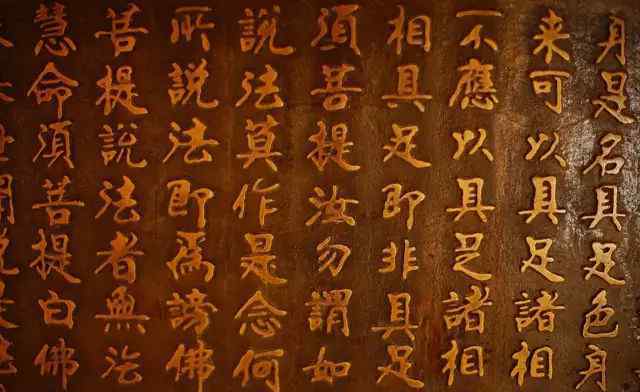 身是名具足色身
来可以具足諸相
不應以具足諸相
相具足即非具足
須菩提汝勿謂如
說法莫作是念何
所說法即為謗佛
菩提說法者無法
慧命須菩提白佛